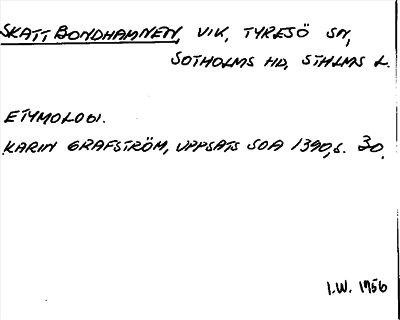 SKATT BONDHAMNEN, VIK, TYRESÖ SN,
SOTHOLMS HD, STHLMS L.
ETYMOLOGI.
KARIN GRAFSTRÖM, UPPSATS SOA 1390, S. 30.
I.W. 1956